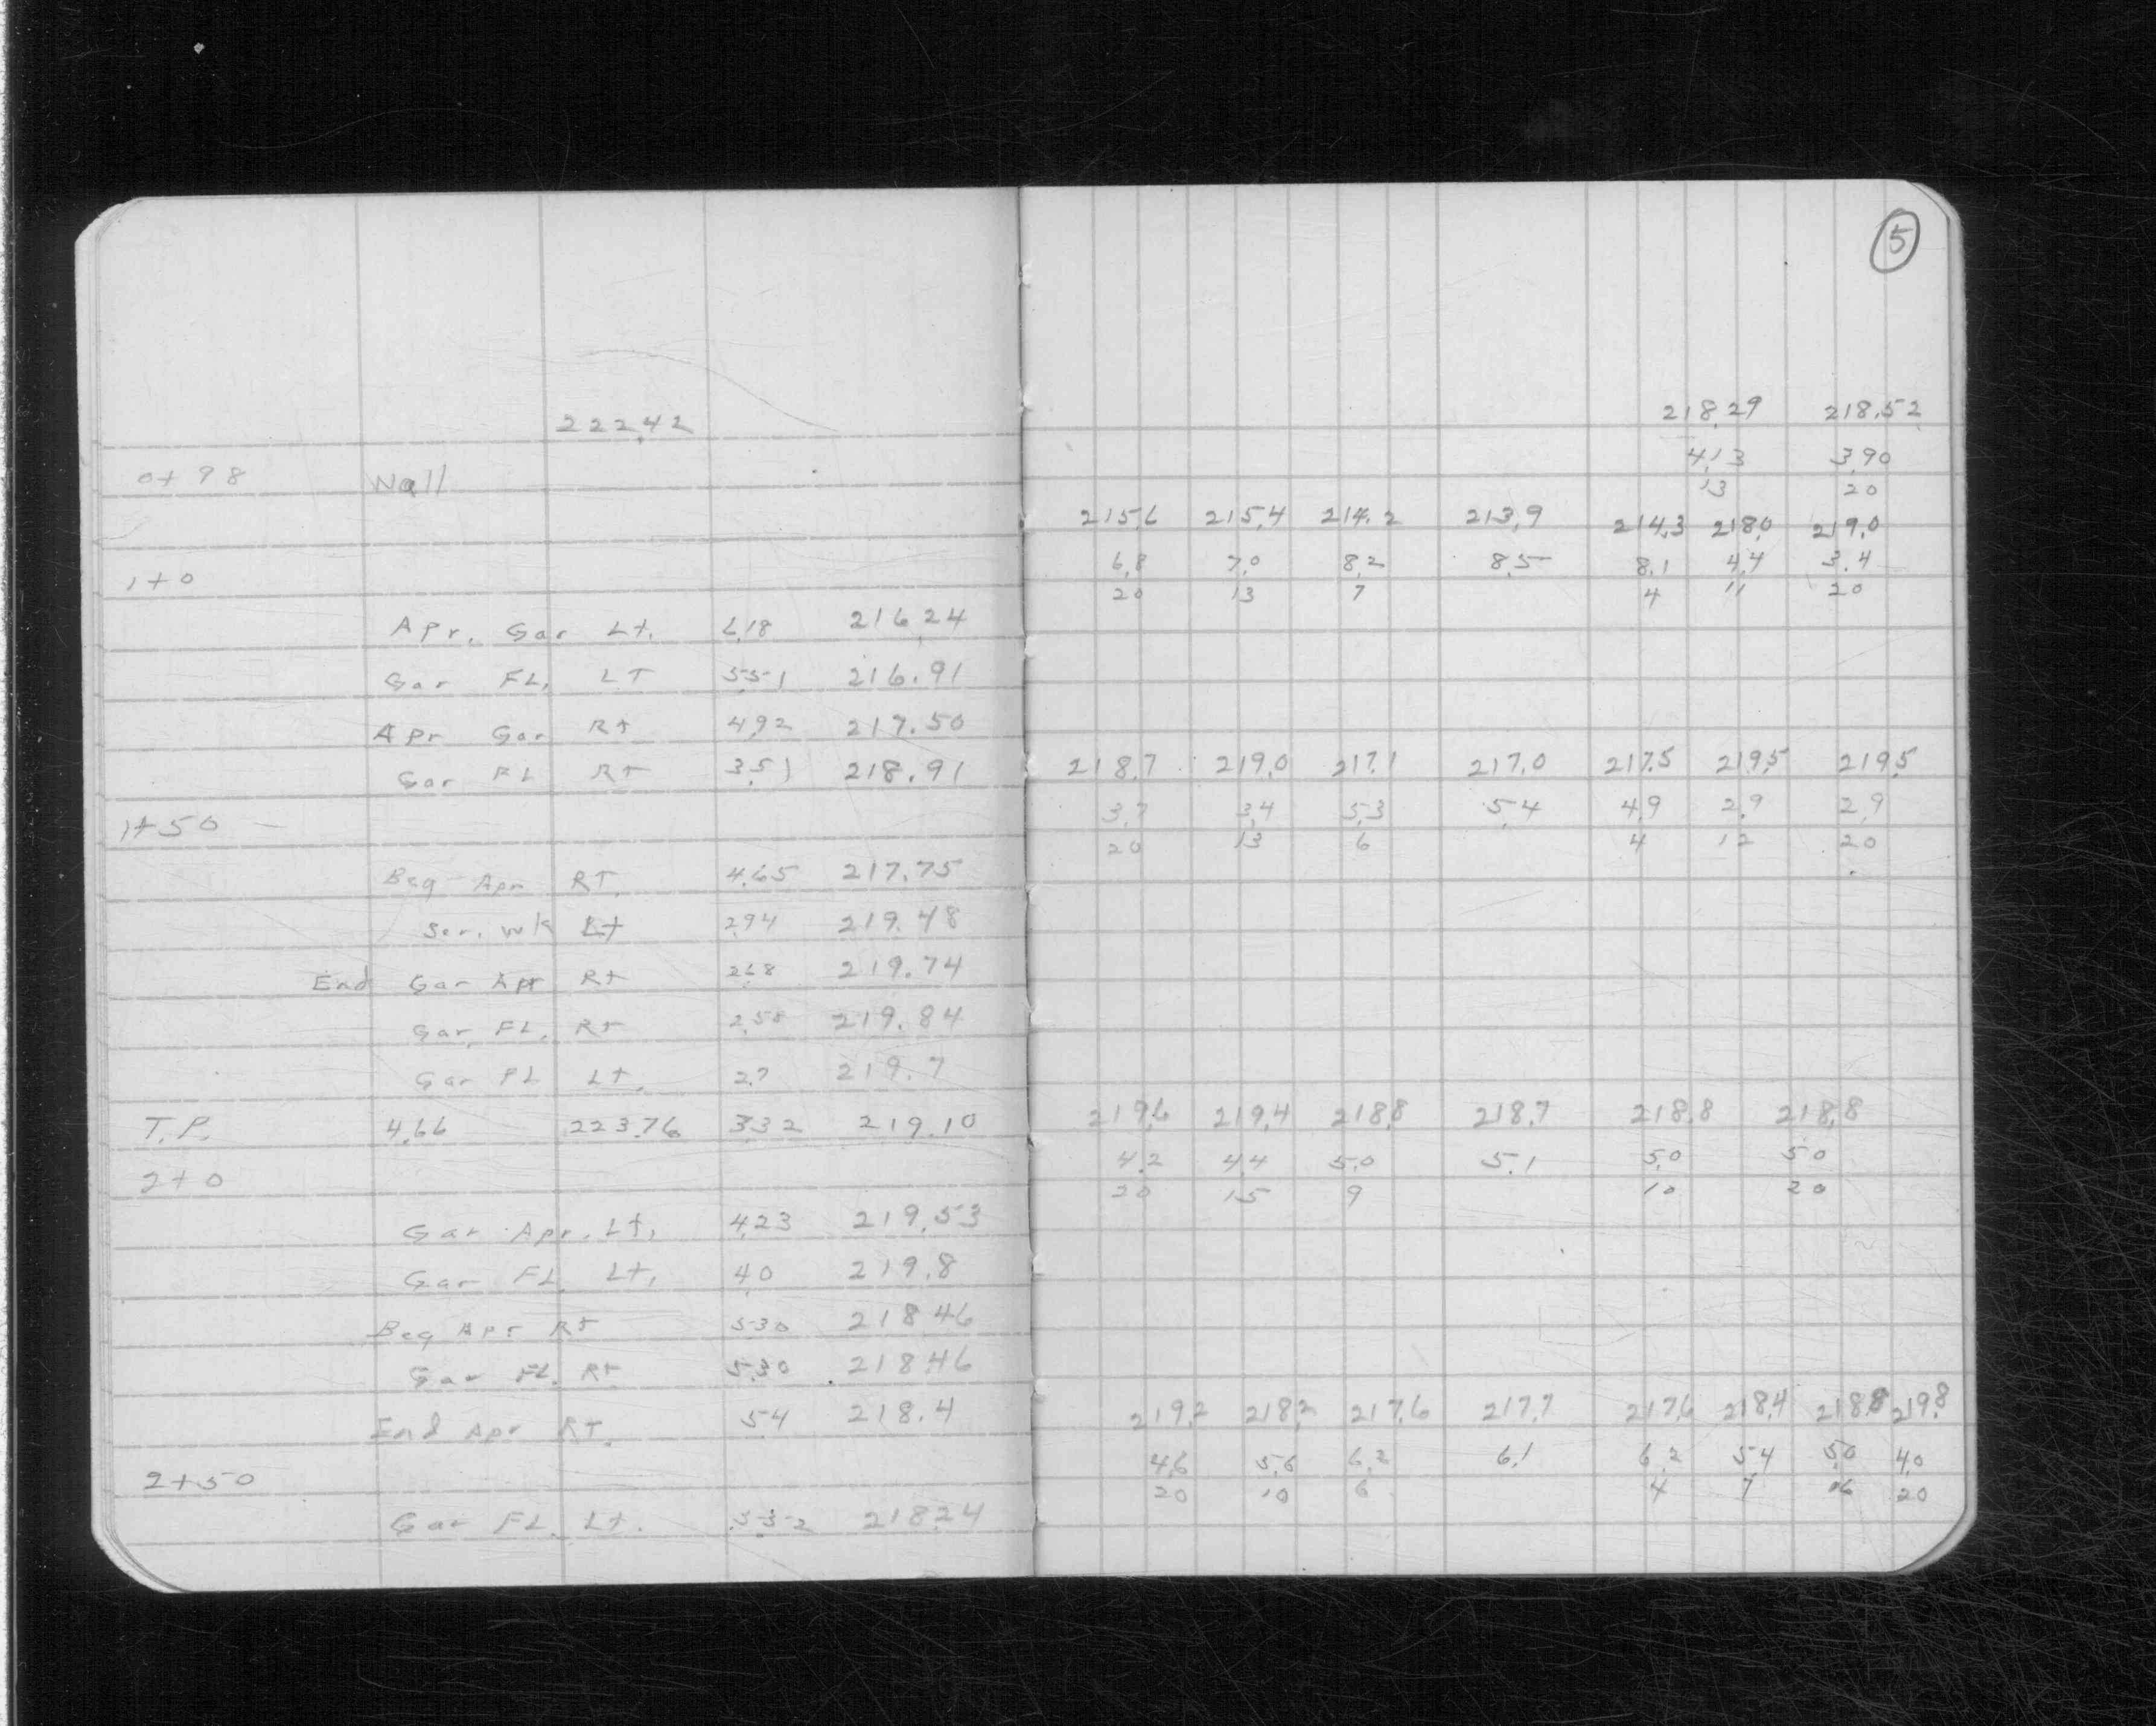 222.42
0+98 Wall
1+0
Apr. Gar Lt. 6.18 216.24
Gar FL. LT 5.51 216.91
Apr Gar Rt 4.92 217.50
Gar FL Rt 3.51 218.91
1+50
Beg Apr RT. 4.65 217.75
Ser. Wk Lt 2.94 219.48
End Gar Apr Rt 2.68 219.74
Gar FL. Rt 219.84
Gar FL Lt. 2.7 219.7
T.P. 4.66 223.76 3.32 219.10
2+0
Gar Apr. Lt. 4.23 219.53
Gar FL Lt. 4.0 219.8
Beg Apr Rt 5.30 218.46
Gar FL. Rt 5.30 218.46
End Apr RT. 5.4 218.4
2+50
Gar FL. Lt. 218.24
5
218.29 218.52
4.13 3.90
13 20
215.6 215.4 214.2 213.9 214.3 218.0 219.0
6.8 7.0 8.2 8.5 8.1 4.4 3.4
20 13 7 4 11 20
218.7 219.0 217.1 217.0 217.5 219.5 219.5
3.7 3.4 5.3 5.4 4.9 2.9 2.9
20 13 6 4 12 20
219.6 219.4 218.8 218.7 218.8 218.8
4.2 4.4 5.0 5.1 5.0 5.0
20 15 9 10 20
219.2 218.2 217.6 217.7 217.6 218.4 218.8 219.8
4.6 5.6 6.2 6.1 6.2 5.4 5.0 4.0
20 10 6 4 7 16 20